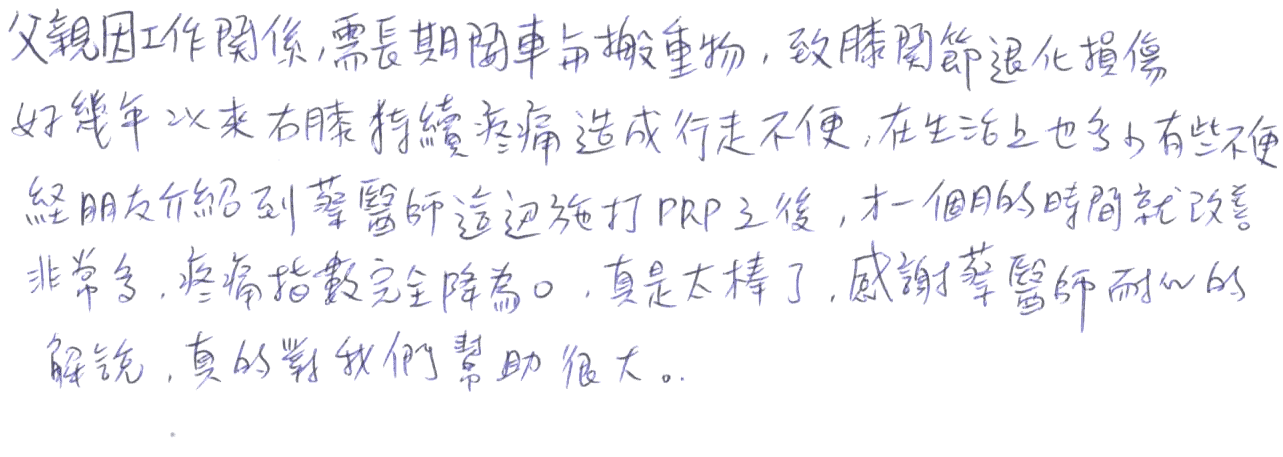 父親因工作關係,需長期開車與搬重物,致膝關節退化損傷
好幾年以來右膝持續疼痛造成行走不便,在生活上也多少有些不便
經朋友介紹到蔡醫師這边施打PRP之後,才一個月的時間就改善
非常多,疼痛指數完全降為0,真是太棒了,感謝蔡醫師耐心的
解說,真的對我們幫助很大。